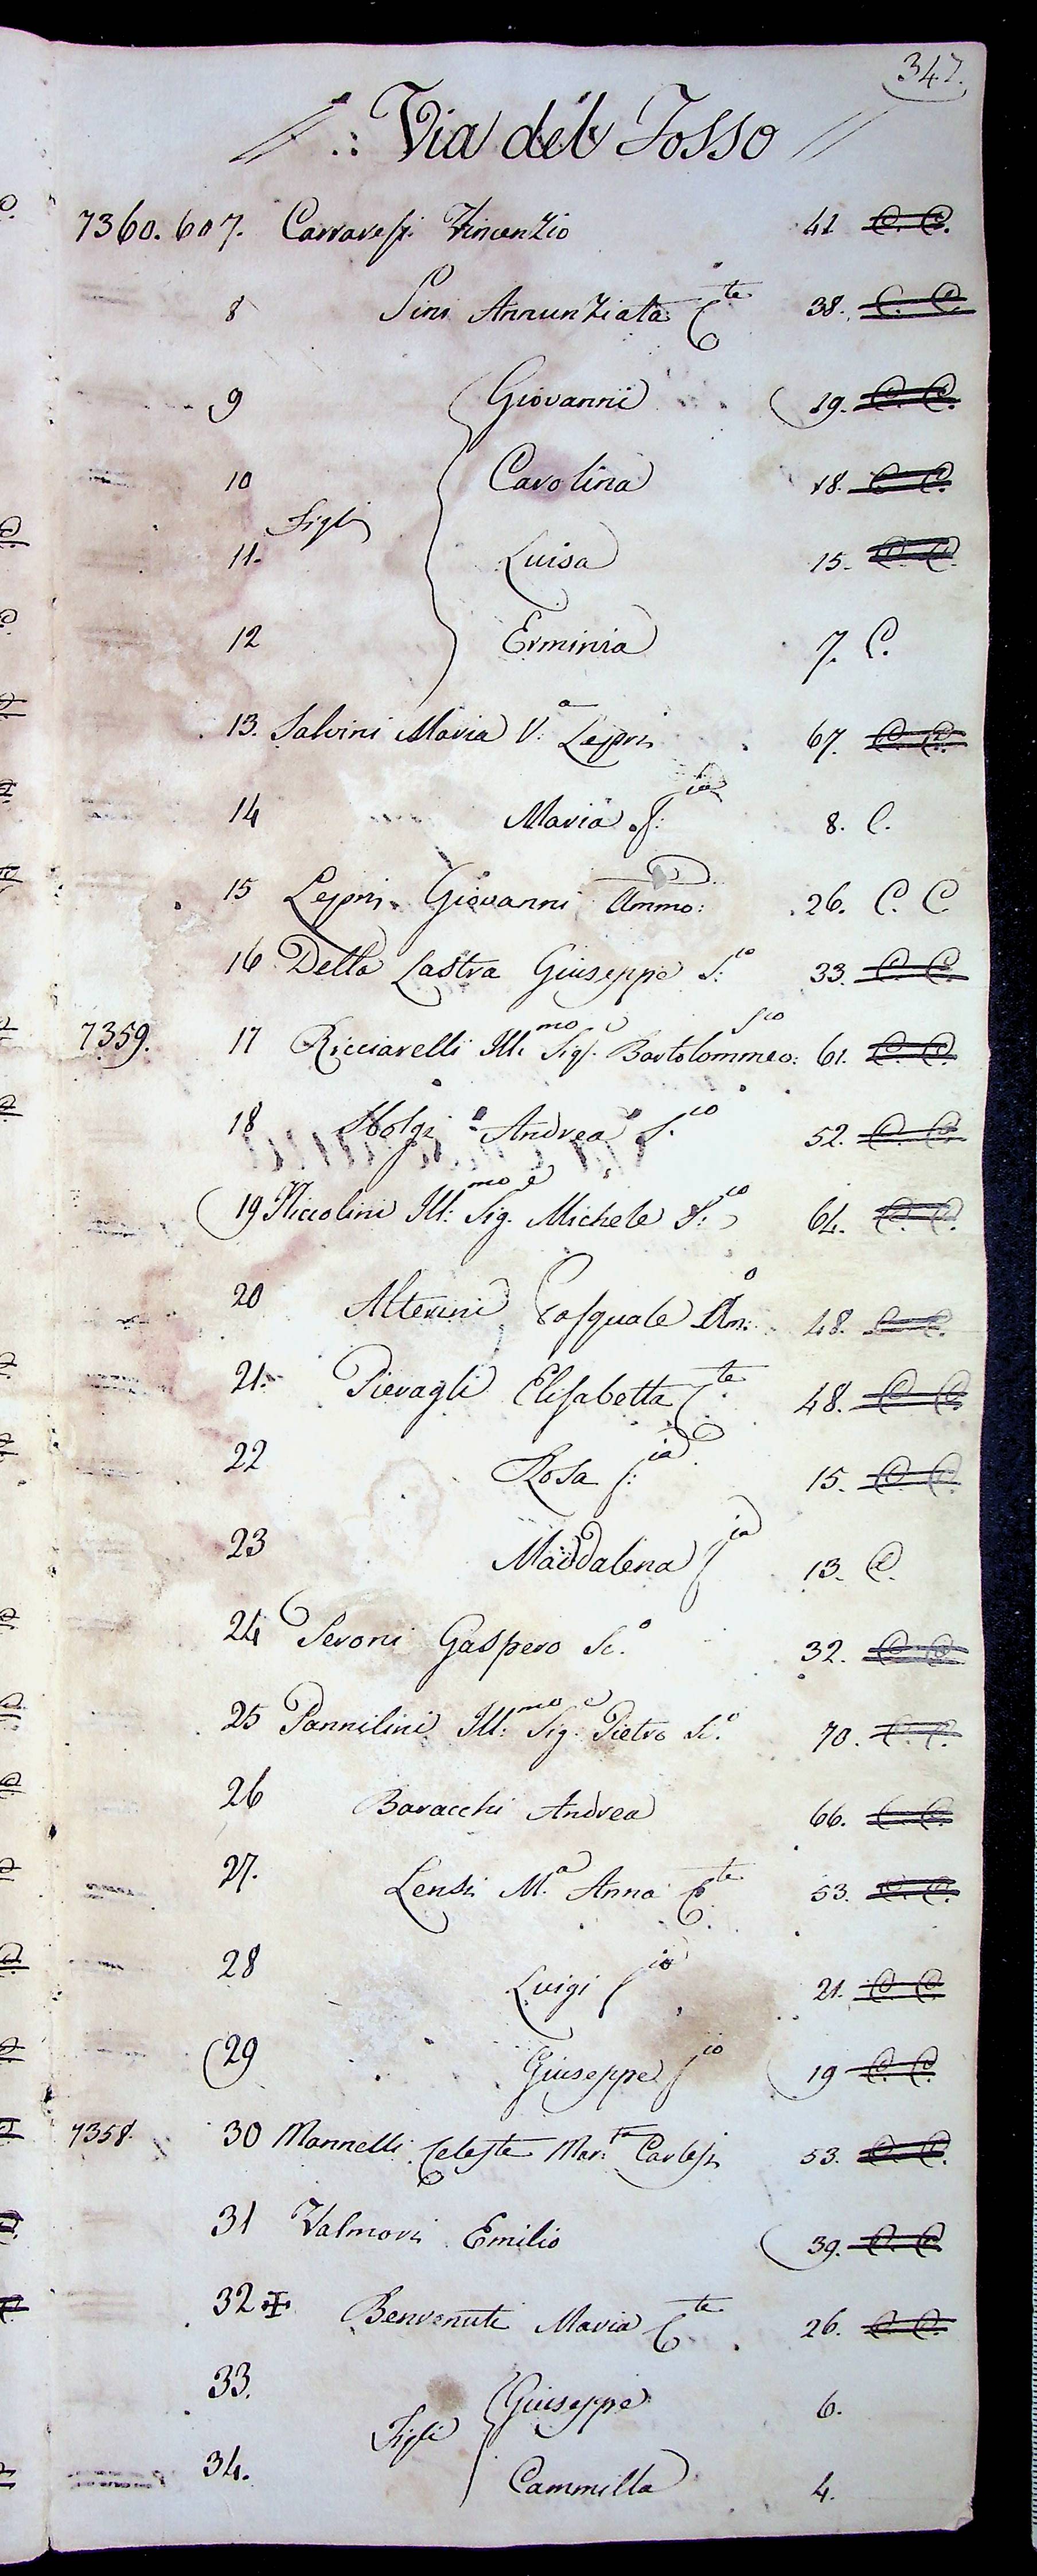 347.
// .: Via del Fosso //
7360. 607. Carraresi Vincenzio 41 C. C.
8 Pini Annunziata C.te 38. C. C.
9 Giovanni 19. C. C.
10 Carolina 18. C. C.
Figli
11. Luisa 15. C. C.
12 Erminia 7. C.
13. Salvini Maria V.a Lepri 67. C. C.
14 Maria f:ia 8. C.
15 Lepri Giovanni Ammo: 26. C. C
16 Della Lastra Giuseppe S:to 33. C. C.
7359. 17 Ricciarelli Ill.mo Sig.e Bartolommeo: S.to 61. C. C.
18 Andrea S.to 52. C. C.
19 Niccolini Ill:mo Sig.e Michele S:to 64. C. C.
20 Alterini Pasquale Am:o 48. C. C.
21. Pieragli Elisabetta C.te 48. C. C.
22 Rosa f:ia 15. C. C.
23 Maddalena f.ia 13. C.
24 Seroni Gaspero Sc.o 32. C. C.
25 Pannilini Ill:mo Sig.e Pietro Sc.o 70. C. C.
26 Baracchi Andrea 66. C. C.
27. Lensi M.a Anna C.te 53. C. C.
28 Luigi f.io 21. C. C.
29 Giuseppe f.io 19 C. C.
7358. 30 Mannelli Celeste Mar:ta Carlesi 53. C. C.
31 Valmori Emilio 39. C. C.
32 ✠ Benvenuti Maria C.te 26. C. C.
33. Giuseppe 6.
Figli
34. Cammilla 4.